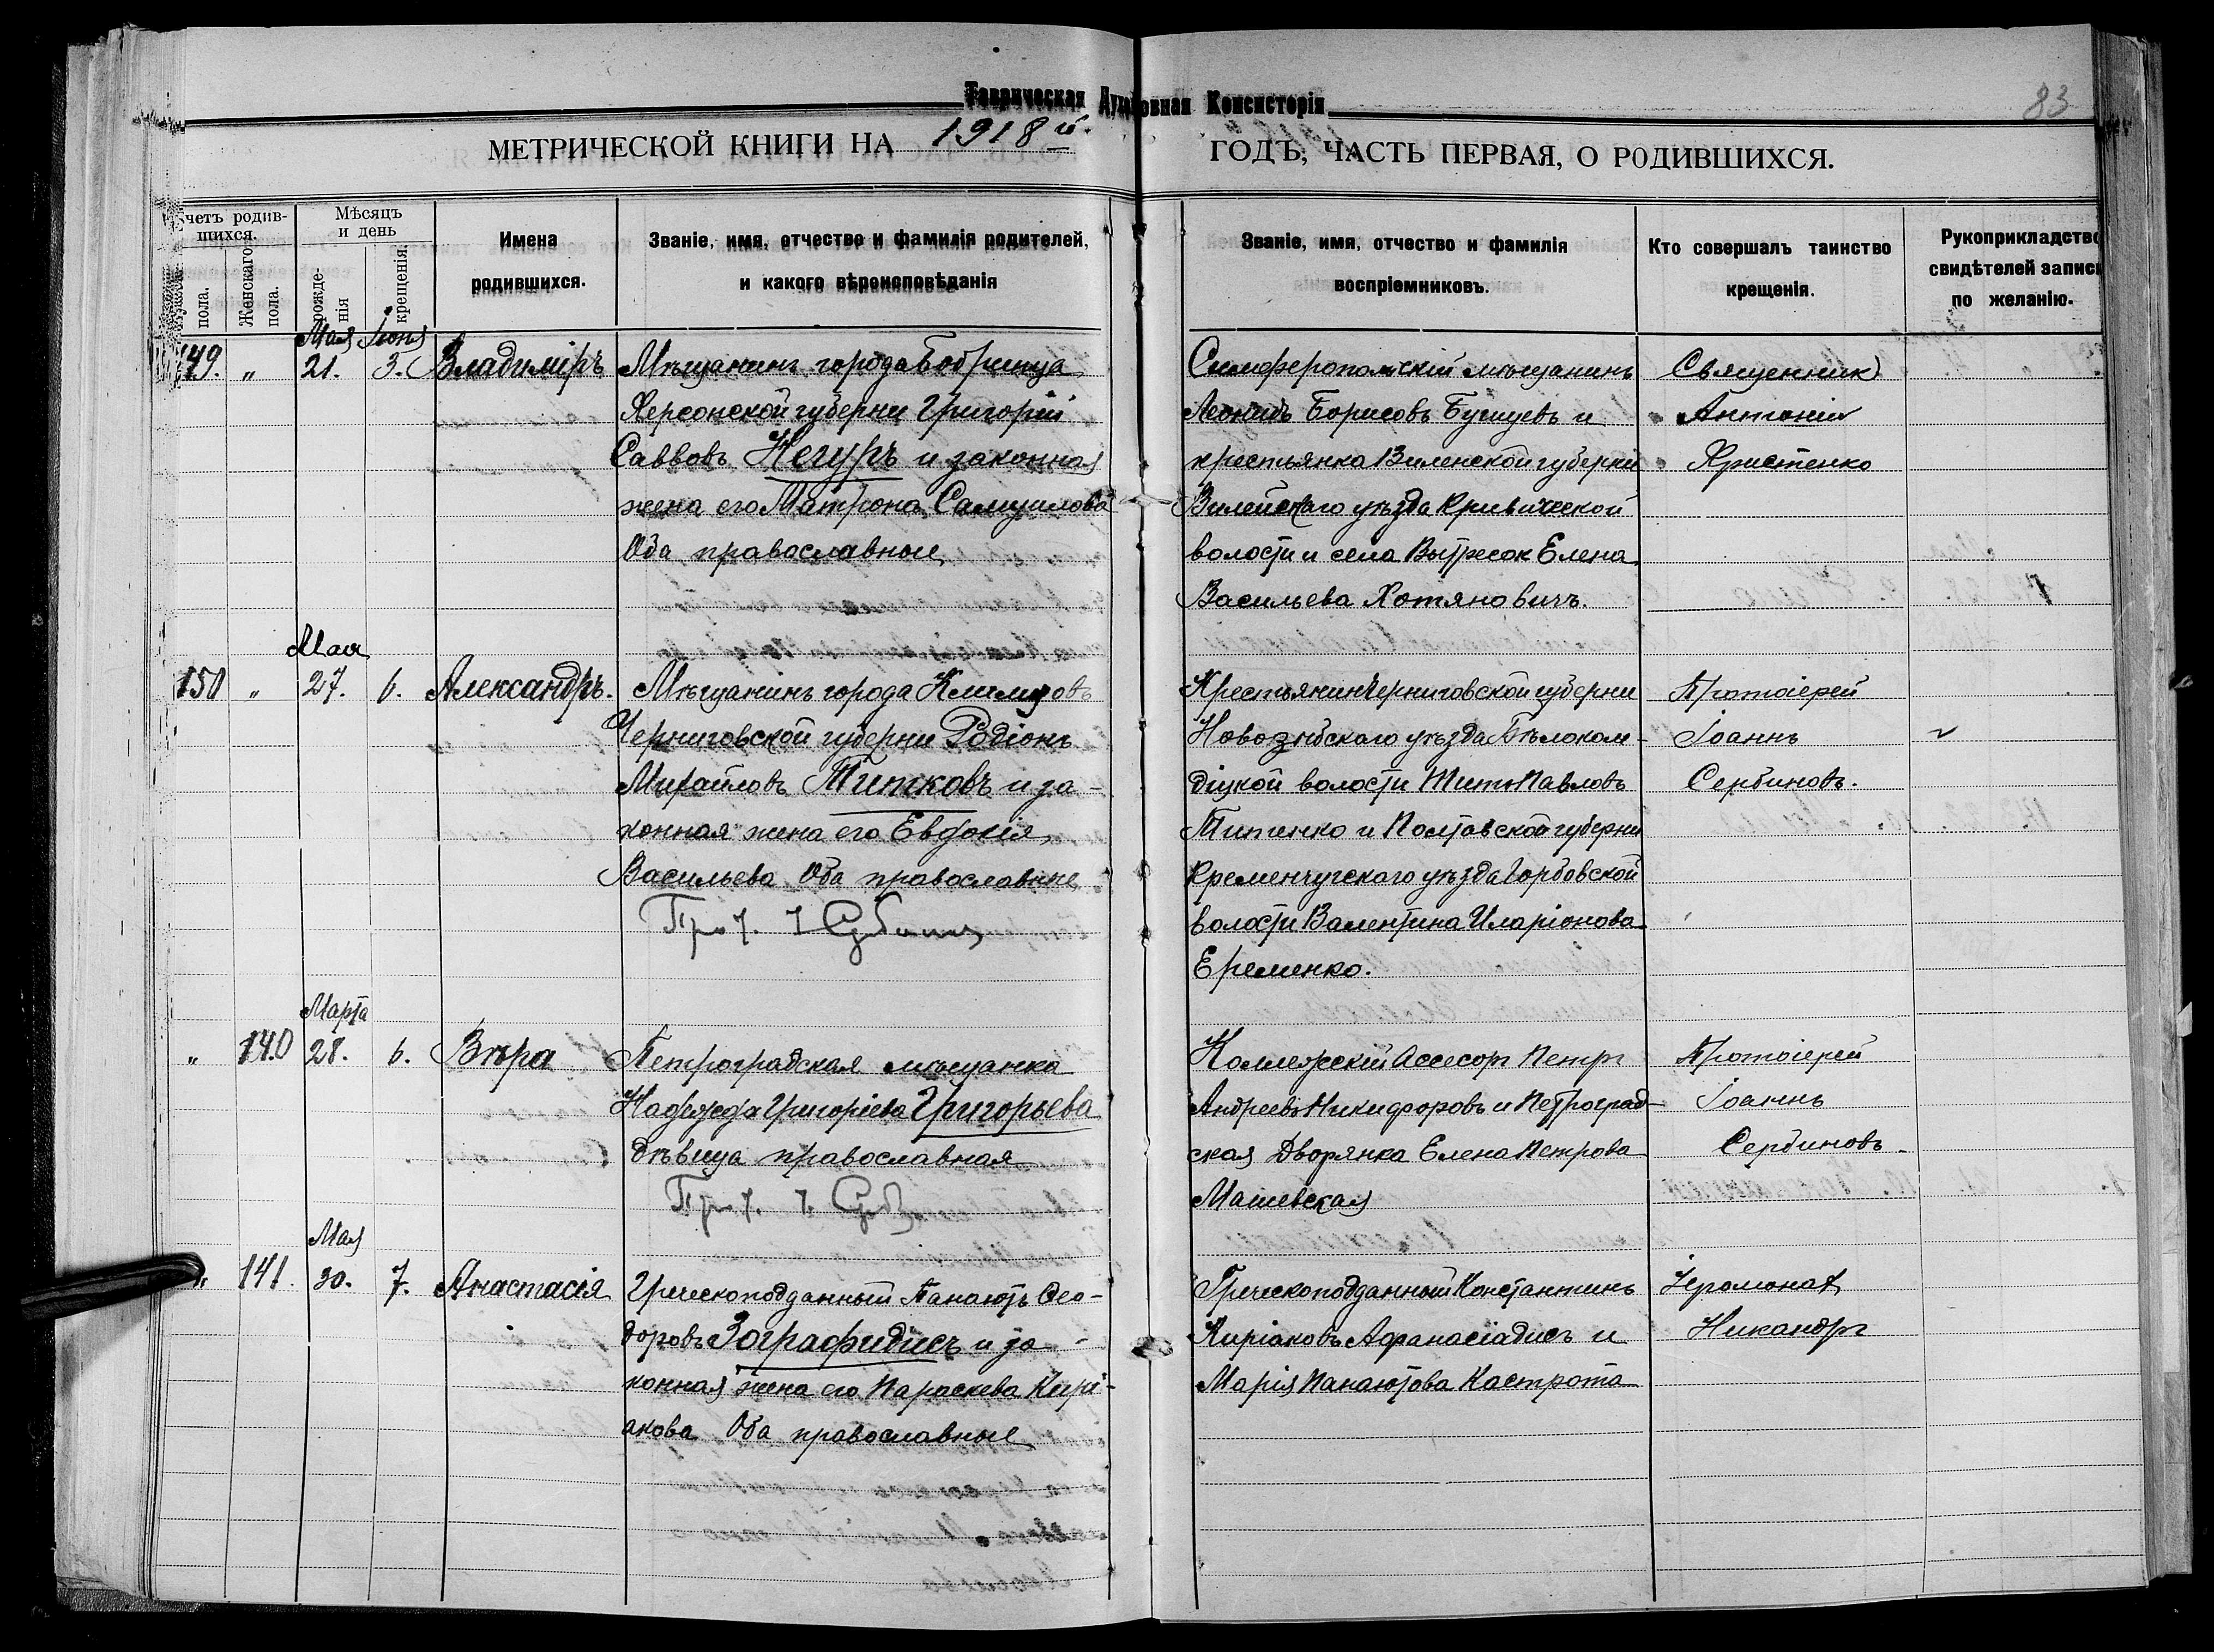 Таврическая Духовная Консисторія
83
МЕТРИЧЕСКОЙ КНИГИ НА 1918й ГОДЪ, ЧАСТЬ ПЕРВАЯ, О РОДИВШИХСЯ.
Счетъ родив-
шихся.
пола.
Женскаго
пола.
Мѣсяцъ
и день
рожде-
нія
крещенія.
Имена
родившихся.
Званіе, имя, отчество и фамилія родителей,
и какого вѣроисповѣданія
Званіе, имя, отчество и фамилія
воспріемниковъ.
Кто совершалъ таинство
крещенія.
Рукоприкладство
свидѣтелей записи
по желанію.
Мая Іюня
149. „ 21. 3. Владиміръ
Мѣщанинъ города Бобринца
Херсонской губерніи Григорій
Саввовъ Негуръ и законная
жена его Матрона Самуилова
Оба православные
Симферопольскій мѣщанинъ
Леонидъ Борисовъ Бушуевъ и
крестьянка Виленской губерніи
Вилейскаго уѣзда Кривичской
волости и села Вытресок Елена
Васильева Хотяновичъ.
Священник
Антоній
Христенко
Мая
150 „ 27. 6. Александръ.
Мѣщанинъ города Климовъ
Черниговской губерніи Родіонъ
Михайловъ Титковъ и за-
конная жена его Евдокія
Васильева Оба православные
Прот. І Сербинов
Крестьянинъ Черниговской губерніи
Новозыбскаго уѣзда Бѣлокол-
діцкой волости Титъ Павловъ
Типенко и Полтавской губерніи
Кременчугскаго уѣзда Горбовской
волости Валентина Иларіонова
Еременко.
Протоіерей
Іоаннъ
Сербиновъ.
Марта
„ 140 28. 6. Вѣра
Петроградская мѣщанка
Надежда Григоріева Григорьева
дѣвица православная
Прот. І. Серб
Коллежскій Ассесоръ Петръ
Андреевъ Никифоровъ и Петроград-
ская Дворянка Елена Петрова
Машевская
Протоіерей
Іоаннъ
Сербиновъ.
Мая
„ 141. 30. 7. Анастасія
Греческоподданный Панаіотъ Ѳео-
доровъ Зографидисъ и за-
конная жена его Параскева Кирі-
акова Оба православные
Греческоподданный Константинъ
Киріаковъ Афанасіадисъ и
Марія Панаіотова Кастрота
Іеромонах
Никандръ